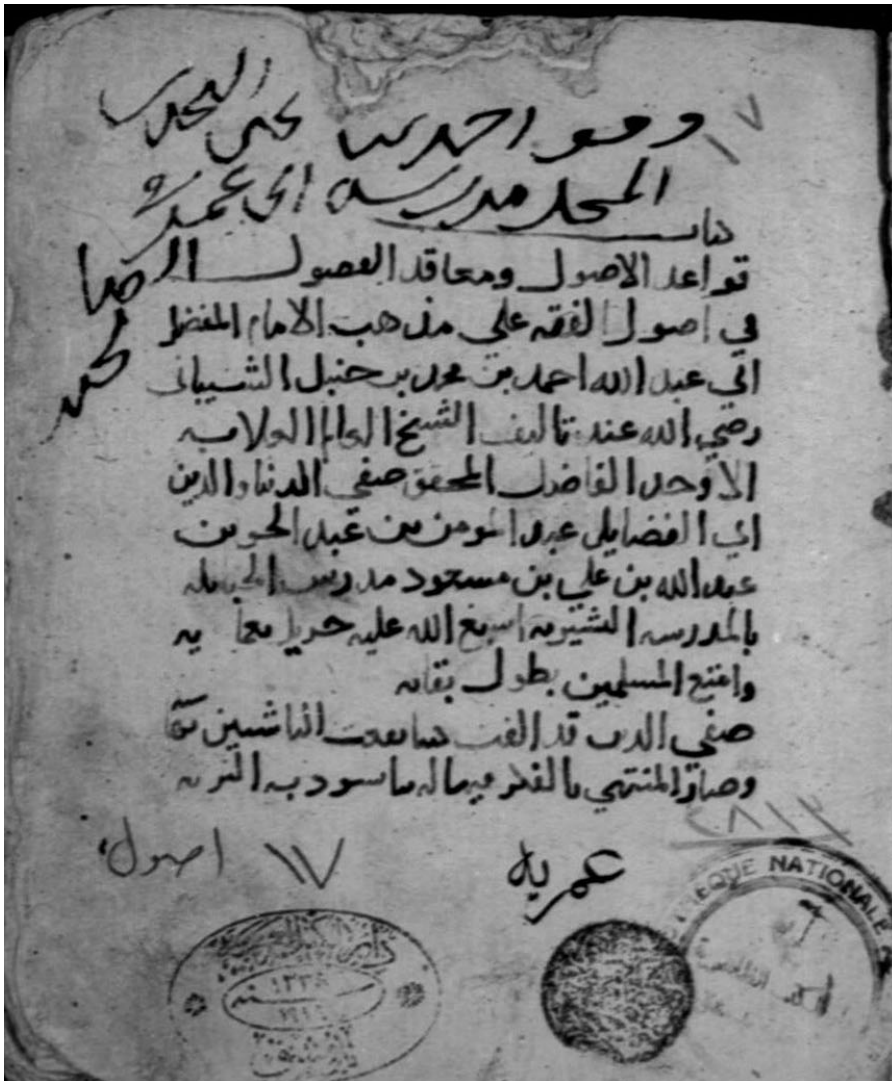 وقف احمد بن يحيى النجدي
المحل مدرسة ابي عمر
الصا
لحيه
كتاب
قواعد الاصول ومعاقد الفصول
في اصول الفقه على مذهب الامام المفضل
ابي عبد الله احمد بن محمد بن حنبل الشيباني
رضي الله عنه تاليف الشيخ الامام العلامه
الاوحد الفاضل المحقق صفي الدنيا والدين
ابي الفضايل عبد المومن بن عبد الحق بن
عبد الله بن علي بن مسعود مدرس الحنابله
بالمدرسه البشيريه اسبغ الله عليه
وامتع المسلمين بطول بقائه
صفي الدين قد الفت كتابا
وصار المنتهي بالفكر فيه
٢٨١٣
١٧ اصول
عمريه
١٧
١٣٣٨
سنة
١٩١٩
BIBLIOTHEQUE NATIONALE